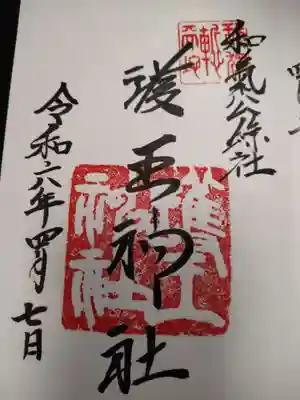 和氣公綜社
護王神社
令和六年四月七日
護王
神社